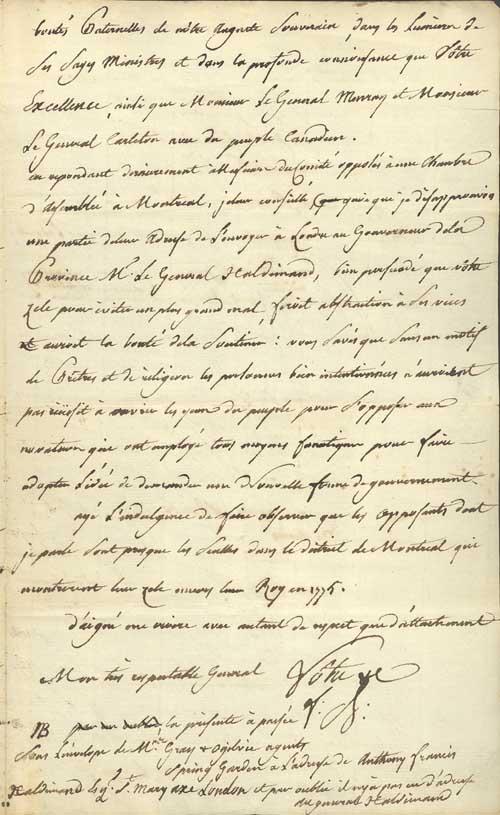 bontés Paternelles de nôtre Auguste Souverain, dans les Lumieres de
Ses Sages Ministres et dans la profonde connoissance que Vôtre
Excellence, ainsi que Monsieur Le General Murray et Monsieur
Le General Carleton avés du peuple Canadien.
en repondant dernierement aux du Comité opposés à une Chambre
d'Assemblée à Montreal, je leur consillé quoique je desapprouvai
une partie de leur Adresse de L'envoyer à Londre au Gouverneur de la
Province Mr. Le General Haldimand, bien persuadé que vôtre
zele pour eviter un plus grand mal, feroit abstraction à Ses vices
et auroit la bonté de la Soutenir: vous Savés que Sans un motif
de Prêtres et de religion les personnes bien intentionnées n'auroient
pas reussit à ouvrir les yeux du peuple pour S'opposer aux
novateurs que ont employé tous moyens fanatique pour faire
adopter L'idée de demander une Nouvelle forme de gouvernement.
ayé L'indulgence de faire observer que les opposants dont
je parle Sont presque les Seulles dans le district de Montreal qui
montrerent leur zele envers leur Roy en 1775.
d'aigné me croire avec autant de respect que d'attachement
Mon très respectable General Vôtre
NB la présente à passée
Sous L'envelope de Mrs. Gray & Ogilvie agents
Spring Garden à L'adresse de Anthony Francis
Haldimand Esqr. St. Mary axe London et par oublie il n'y a pas eu d'adresse
au general Haldimand